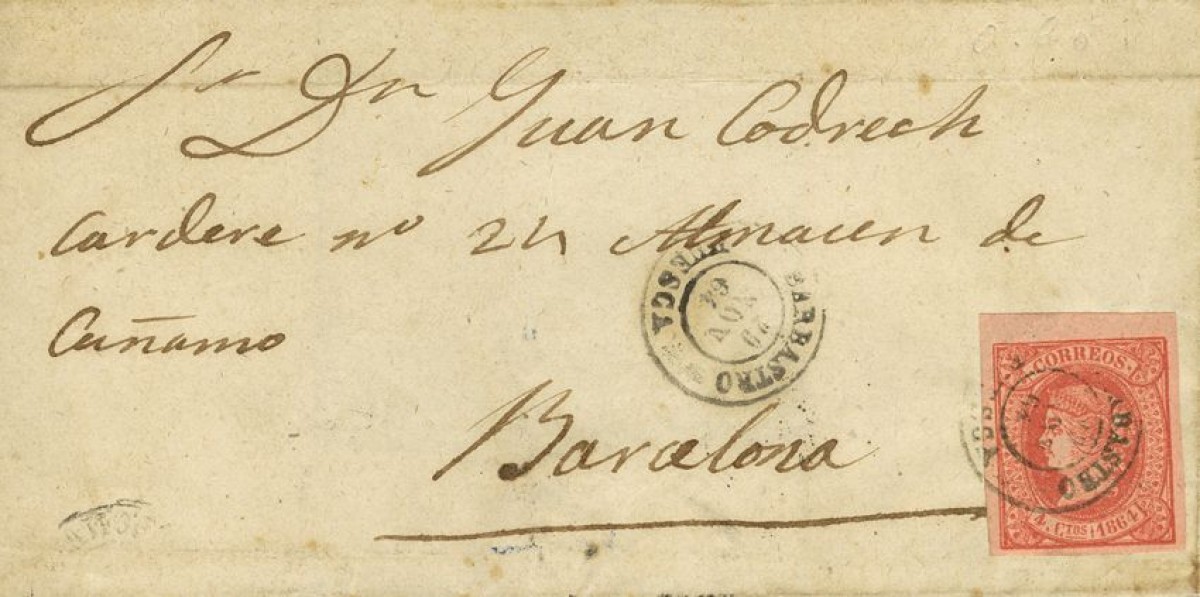 Sr Dn Juan Codrech
Cardere nº 24 Almacen de
Cañamo
Barcelona
BARBASTRO
HUESCA
20
NOV
64
CORREOS
4 CTOS 1864
BARBASTRO